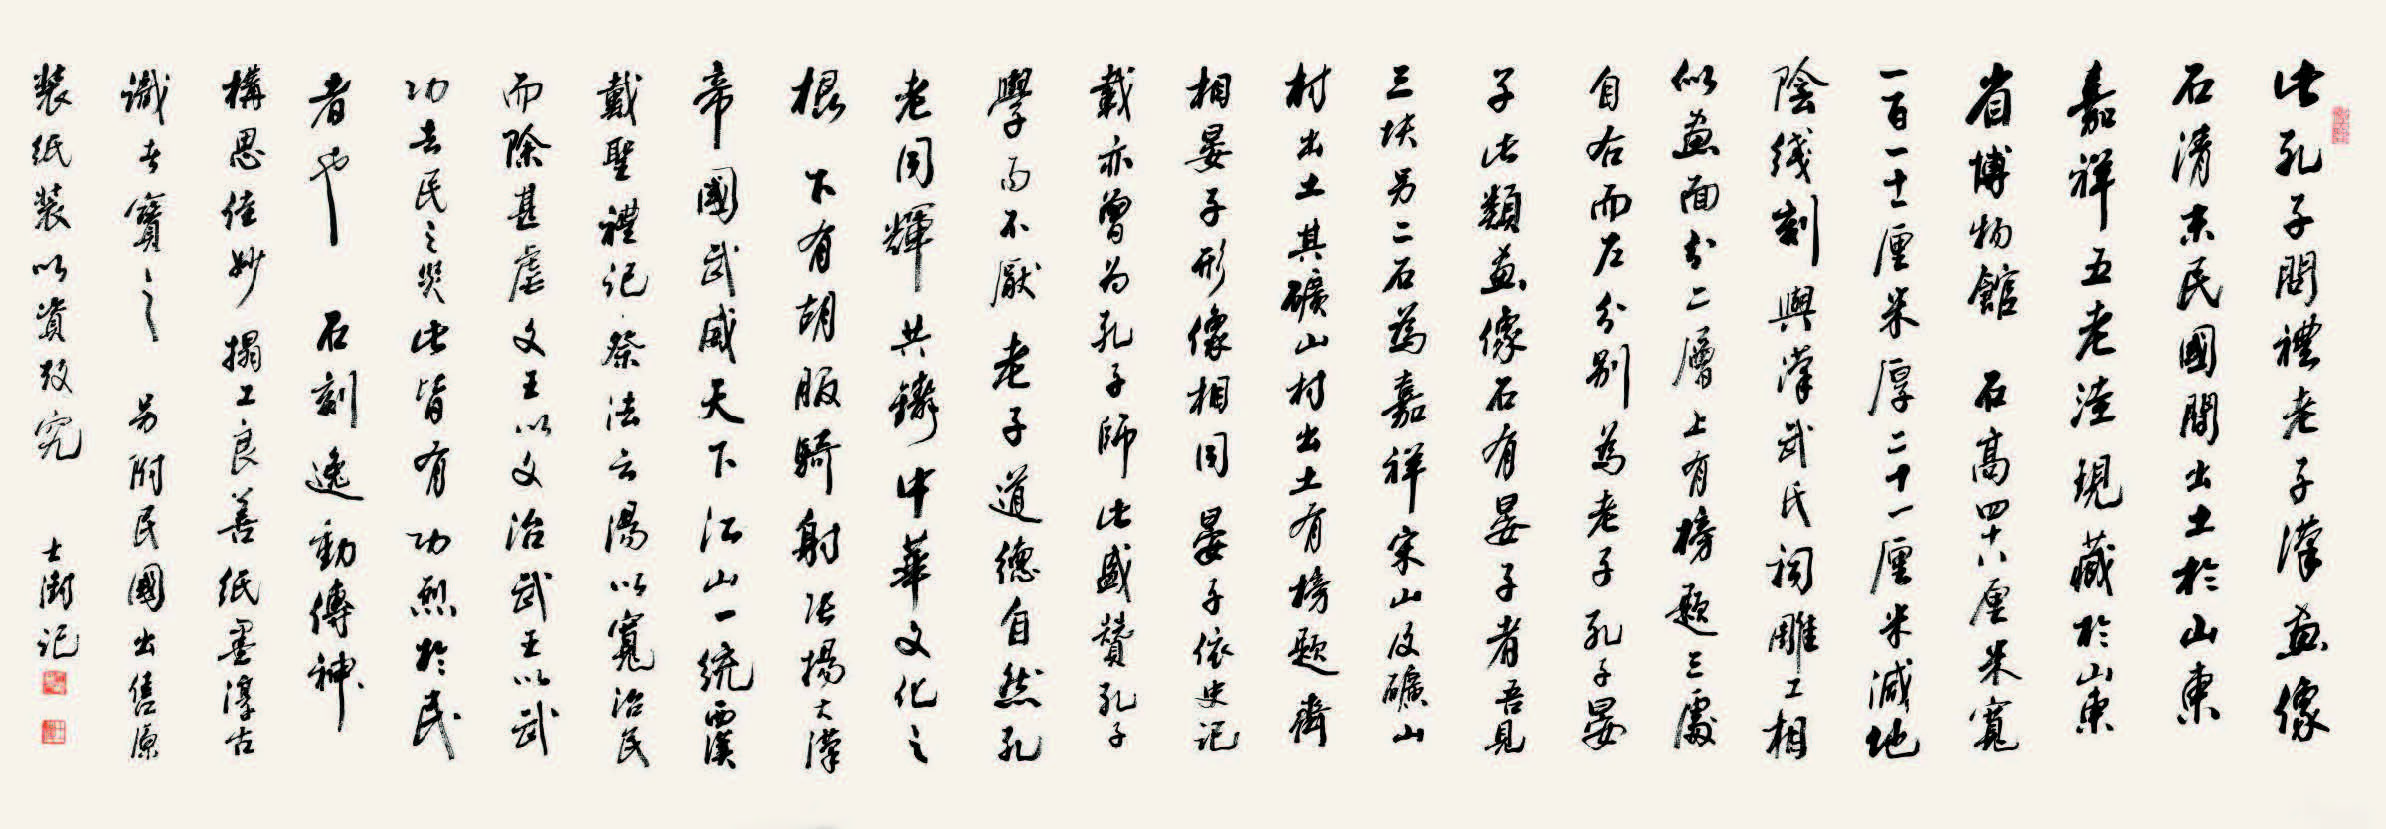 此孔子問禮老子漢畫像
石清末民國間出土於山東
嘉祥五老洼現藏於山東
省博物館 石高四十八厘米寬
一百一十厘米厚二十一厘米減地
陰綫刻與漢武氏祠雕工相
似畫面分二層上有榜題三處
自右而左分別為老子孔子晏
子此類畫像石有晏子者吾見
三块另二石為嘉祥宋山及礦山
村出土其礦山村出土有榜題齊
相晏子形像相同晏子依史記
載亦曾為孔子師此盛贊孔子
學而不厭老子道德自然孔
老同輝共鑄中華文化之
根 下有胡服騎射張揚大漢
帝國武威天下江山一統西漢
戴聖禮記·祭法云湯以寬治民
而除甚虐文王以文治武王以武
功去民之災此皆有功烈於民
者也 石刻逸動傳神
構思佳妙搨工良善紙墨淳古
識者寶之 另附民國出售原
裝紙袋以資攷究 士澍記